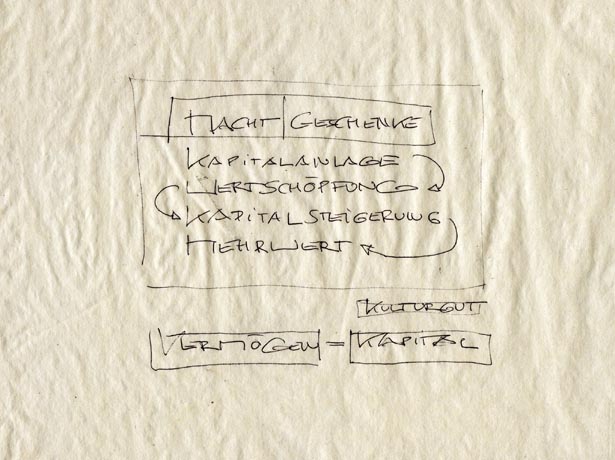 MACHT GESCHENKE
KAPITALANLAGE
WERTSCHÖPFUNG
KAPITALSTEIGERUNG
MEHRWERT
KULTURGUT
VERMÖGEN = KAPITAL